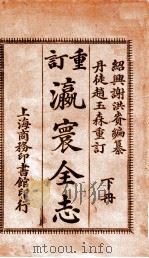 紹興謝洪賚編纂
丹徒趙玉森重訂
下冊
重訂
瀛寰全志
上海商務印書館印行
www.duxiu.com